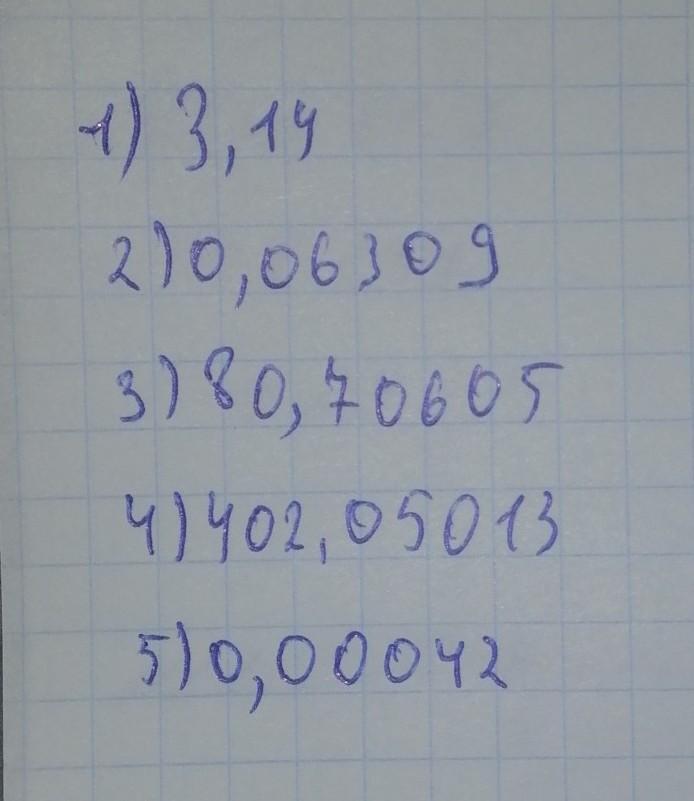 1) 3,14
2) 0,06309
3) 80,70605
4) 402,05013
5) 0,00042